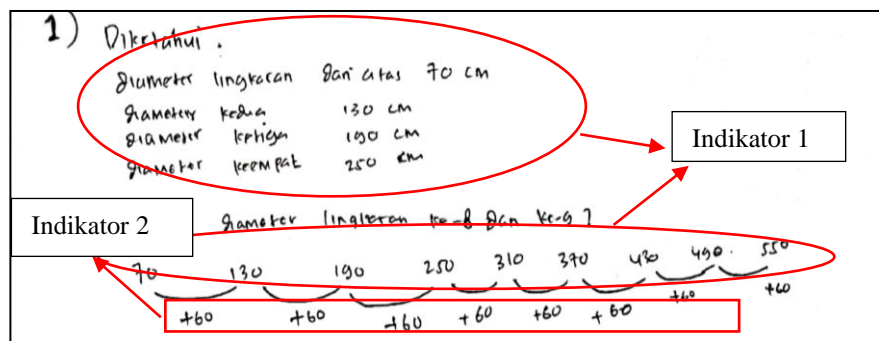 1) Diketahui :
diameter lingkaran dari atas 70 cm
diameter kedua 130 cm
diameter ketiga 190 cm
diameter keempat 250 cm
Indikator 1
diameter lingkaran ke-8 dan ke-9 ?
Indikator 2
70 130 190 250 310 370 430 490 550
+60 +60 +60 +60 +60 +60 +60 +60